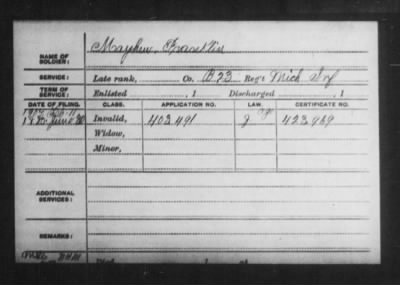 NAME OF SOLDIER: Mayhew, Franklin
SERVICE: Late rank, Co. B. 23 Reg't Mich Inf
TERM OF SERVICE: Enlisted , 1 Discharged , 1
DATE OF FILING. CLASS. APPLICATION NO. LAW. CERTIFICATE NO.
June Invalid, 403,491 423,969
Widow,
Minor,
ADDITIONAL SERVICES:
REMARKS: